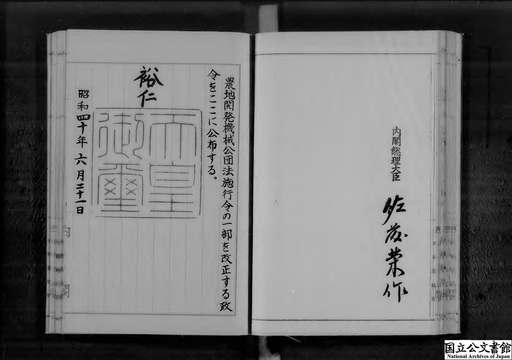 農地開発機械公団法施行令の一部を改正する政
令をここに公布する。
裕仁
天皇
御璽
昭和四十年六月二十一日
内閣総理大臣
佐藤榮作
国立公文書館
National Archives of Japan